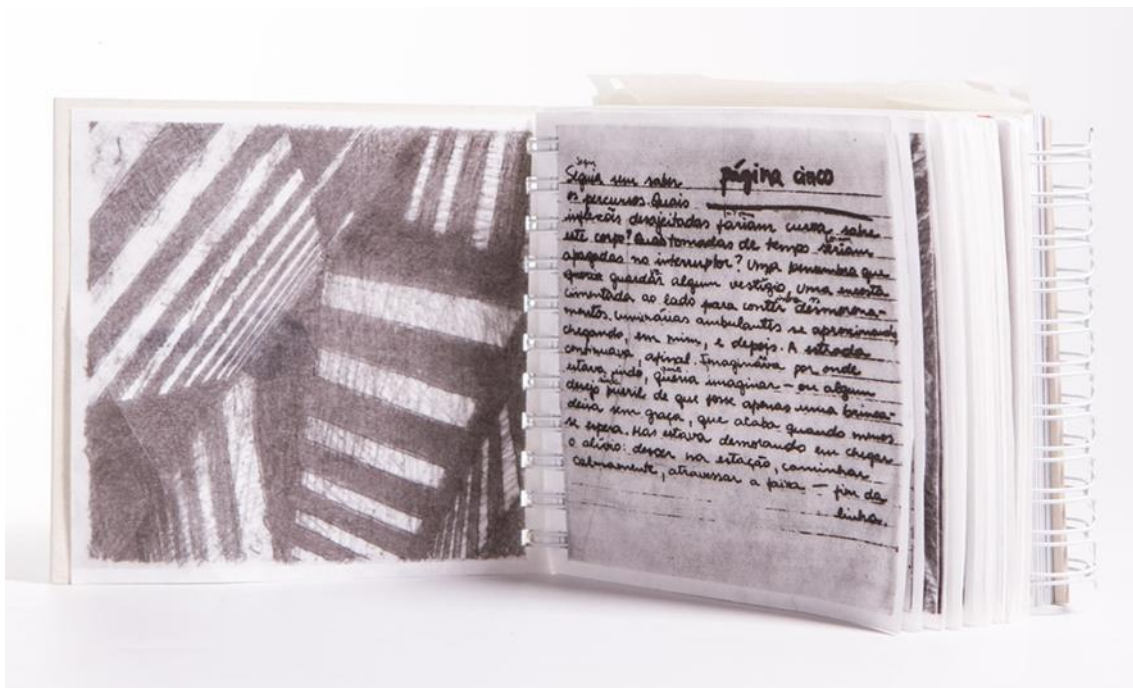 Segui
Seguia sem saber página cinco
os percursos. Quais
inflexões desajeitadas fariam curva sobre
este corpo? Quais tomadas de tempo seriam
apagadas no interruptor? Uma penumbra que
queria guardar algum vestígio, uma encosta
cimentada ao lado para conter desmorona-
mentos. Luminárias ambulantes se aproximando
chegando, em mim, e depois. A estrada
continuava, afinal. Imaginava por onde
estava indo, queria imaginar — ou algum
desejo pueril de que fosse apenas uma brinca-
deira sem graça, que acaba quando menos
se espera. Mas estava demorando em chegar
o alívio: descer na estação, caminhar
calmamente, atravessar a faixa — fim da
linha.